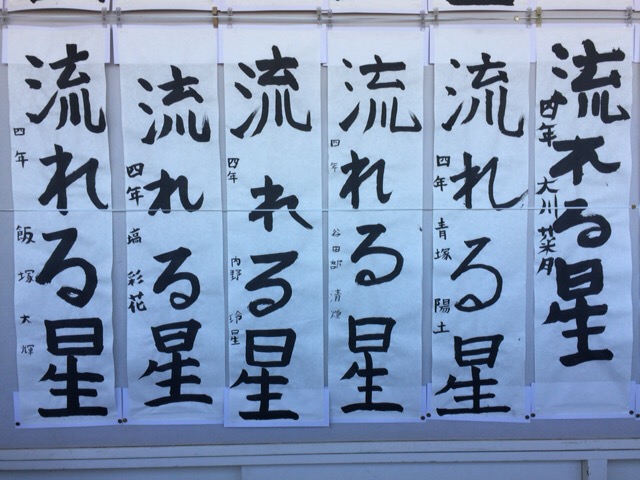 流れる星
四年 大川菜月
流れる星
四年 青塚 陽土
流れる星
四年 谷田部
流れる星
四年 内野 玲星
流れる星
四年 塙 彩花
流れる星
四年 飯塚 大輝